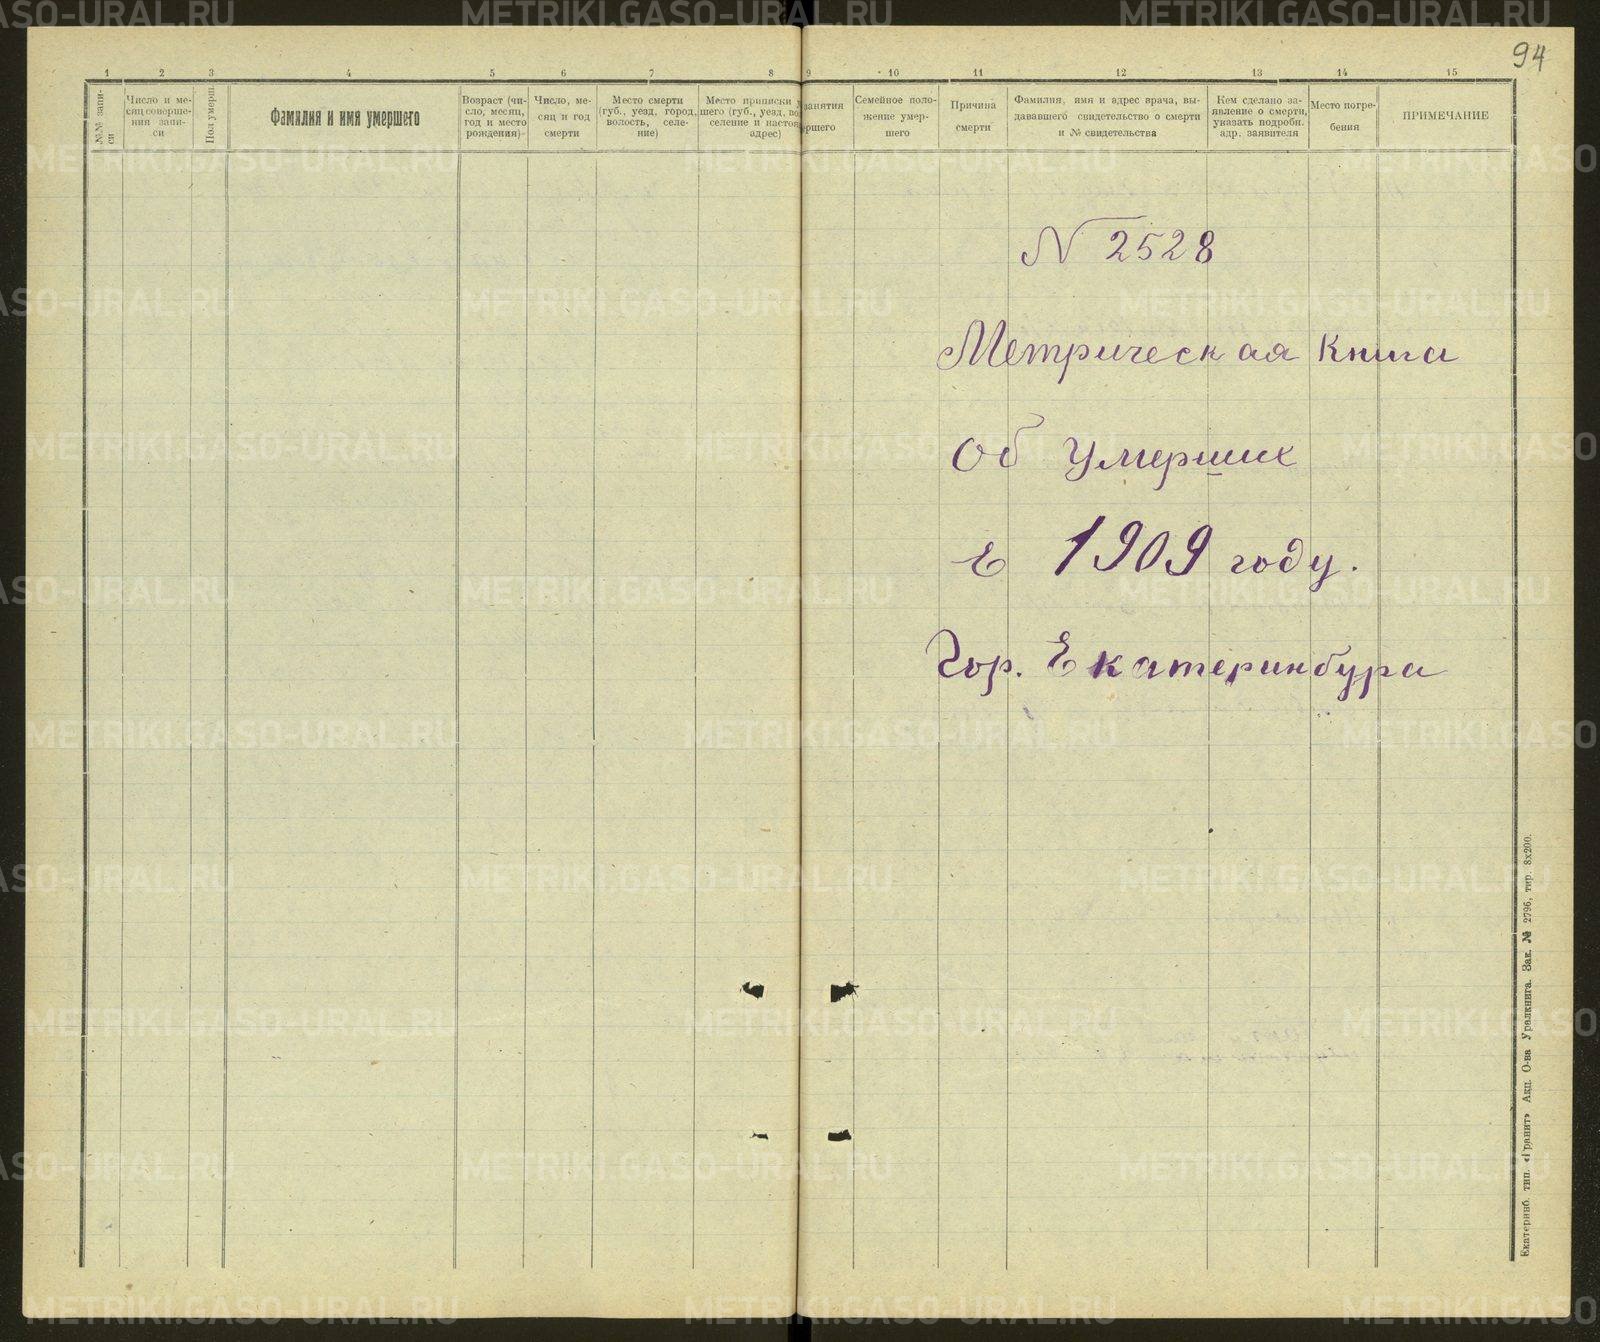 94
1 2 3 4 5 6 7 8 9 10 11 12 13 14 15
№№ записи
Число и месяц совершения записи
Пол умерш.
Фамилия и имя умершего
Возраст (число, месяц, год и место рождения)
Число, месяц и год смерти
Место смерти (губ., уезд, город, волость, селение)
Место приписки
шего (губ., уезд, во
селение и настоя
адрес)
занятия
ершего
Семейное положение умершего
Причина смерти
Фамилия, имя и адрес врача, выдававшего свидетельство о смерти и № свидетельства
Кем сделано заявление о смерти, указать подробн. адр. заявителя
Место погребения
ПРИМЕЧАНИЕ
N 2528
Метрическая Книга
Об Умерших
в 1909 году.
Гор. Екатеринбурга
Екатеринб. тип. «Гранит» Акц. О-ва Уралкнига. Зак. № 2796, тир. 8х200.
METRIKI.GASO-URAL.RU